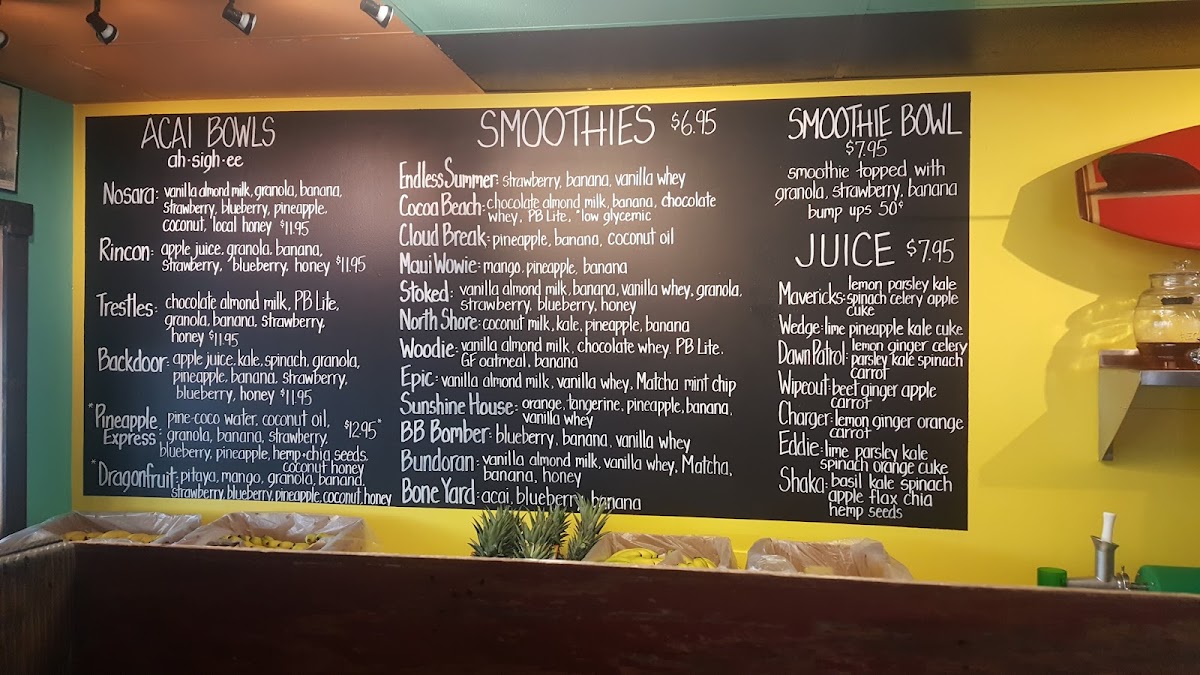 ACAI BOWLS
ah·sigh·ee
Nosara: vanilla almond milk, granola, banana,
strawberry, blueberry, pineapple,
coconut, local honey $11.95
Rincon: apple juice, granola, banana,
strawberry, blueberry, honey $11.95
Trestles: chocolate almond milk, PB Lite,
granola, banana, strawberry,
honey $11.95
Backdoor: apple juice, kale, spinach, granola,
pineapple, banana, strawberry,
blueberry, honey $11.95
*Pineapple Express: pine-coco water, coconut oil, $12.95*
granola, banana, strawberry,
blueberry, pineapple, hemp+chia seeds,
coconut honey
*Dragonfruit: pitaya, mango, granola, banana,
strawberry, blueberry, pineapple, coconut, honey
SMOOTHIES $6.95
Endless Summer: strawberry, banana, vanilla whey
Cocoa Beach: chocolate almond milk, banana, chocolate
whey, PB Lite, *low glycemic
Cloud Break: pineapple, banana, coconut oil
Maui Wowie: mango, pineapple, banana
Stoked: vanilla almond milk, banana, vanilla whey, granola,
strawberry, blueberry, honey
North Shore: coconut milk, kale, pineapple, banana
Woodie: vanilla almond milk, chocolate whey, PB Lite,
GF oatmeal, banana
Epic: vanilla almond milk, vanilla whey, Matcha mint chip
Sunshine House: orange, tangerine, pineapple, banana,
vanilla whey
BB Bomber: blueberry, banana, vanilla whey
Bundoran: vanilla almond milk, vanilla whey, Matcha,
banana, honey
Bone Yard: acai, blueberry, banana
SMOOTHIE BOWL
$7.95
smoothie topped with
granola, strawberry, banana
bump ups 50¢
JUICE $7.95
Mavericks: lemon parsley kale
spinach celery apple
cuke
Wedge: lime pineapple kale cuke
Dawn Patrol: lemon ginger celery
parsley kale spinach
carrot
Wipeout: beet ginger apple
carrot
Charger: lemon ginger orange
carrot
Eddie: lime parsley kale
spinach orange cuke
Shaka: basil kale spinach
apple flax chia
hemp seeds